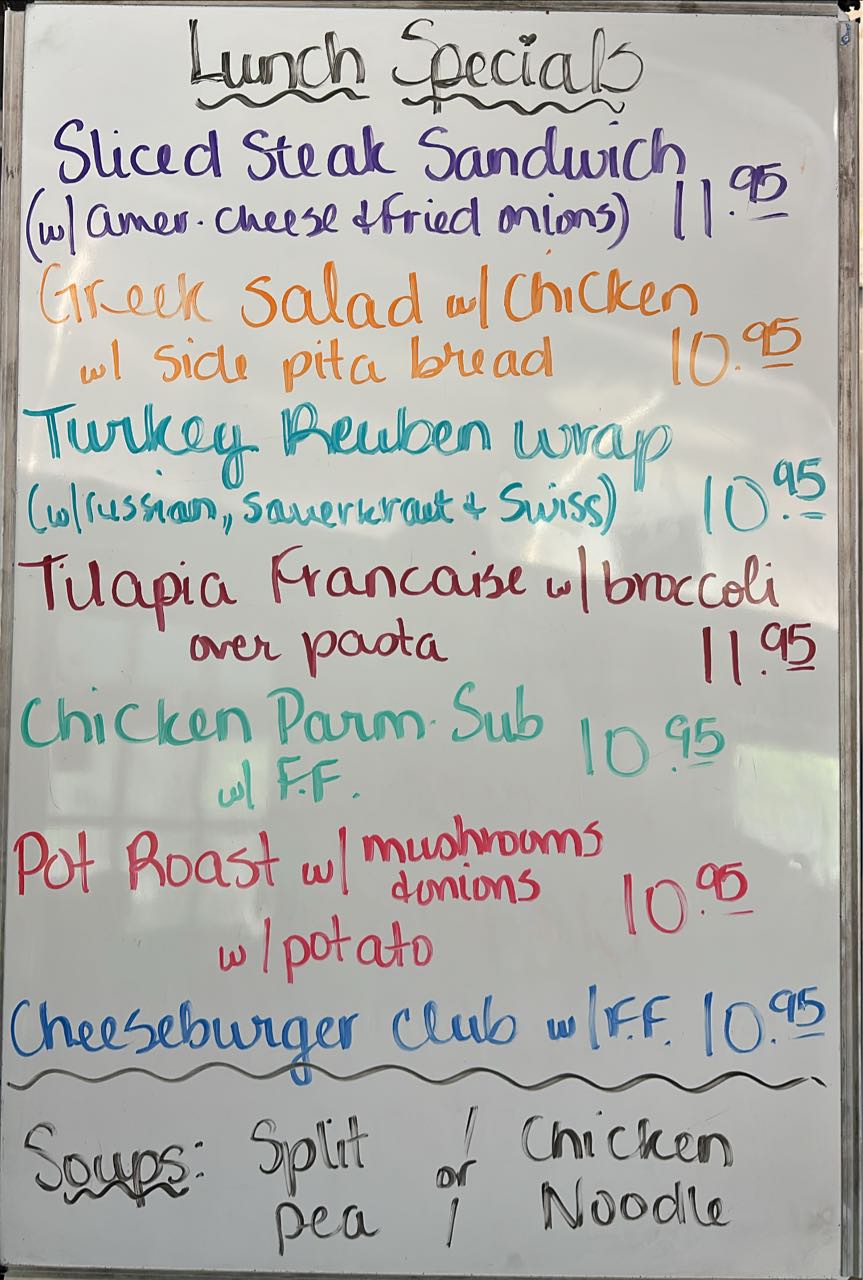 Lunch Specials
Sliced Steak Sandwich
(w/ amer. cheese & fried onions) 11.95
Greek Salad w/ Chicken
w/ side pita bread 10.95
Turkey Reuben wrap
(w/russian, sauerkraut & Swiss) 10.95
Tilapia Francaise w/ broccoli
over pasta 11.95
Chicken Parm. Sub 10.95
w/ F.F.
Pot Roast w/ mushrooms
& onions 10.95
w/ potato
Cheeseburger Club w/ F.F. 10.95
Soups: Split / Chicken
or
pea / Noodle